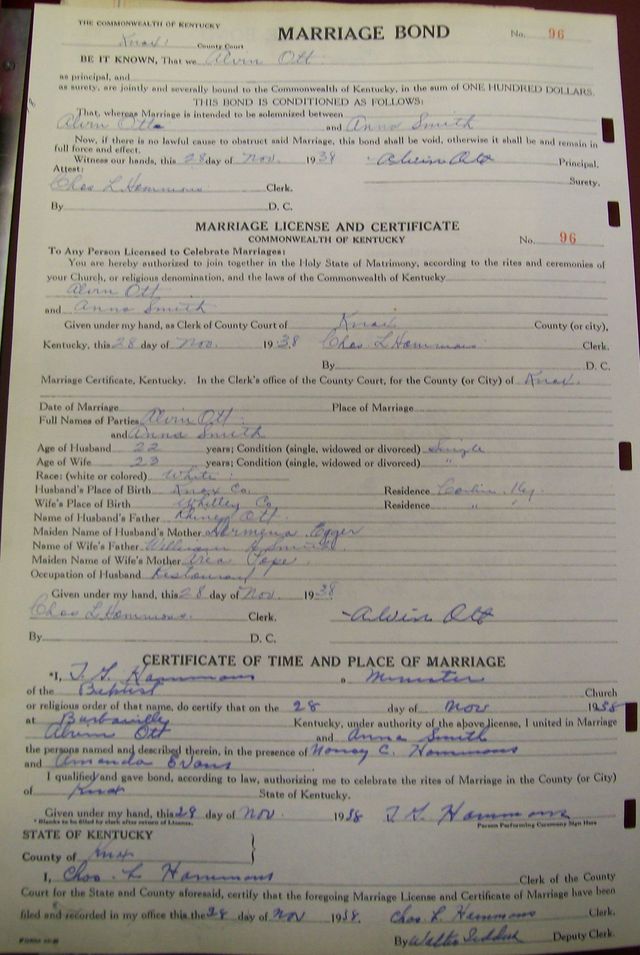 THE COMMONWEALTH OF KENTUCKY
MARRIAGE BOND
No. 96
Knox County Court
BE IT KNOWN, That we Alvin Ott
as principal, and
as surety, are jointly and severally bound to the Commonwealth of Kentucky, in the sum of ONE HUNDRED DOLLARS.
THIS BOND IS CONDITIONED AS FOLLOWS:
That, whereas Marriage is intended to be solemnized between
Alvin Ott and Anna Smith
Now, if there is no lawful cause to obstruct said Marriage, this bond shall be void, otherwise it shall be and remain in
full force and effect.
Witness our hands, this 28 day of Nov. 1938 Alvin Ott Principal.
Attest: Surety.
Chas L Hammons Clerk.
By D. C.
MARRIAGE LICENSE AND CERTIFICATE
COMMONWEALTH OF KENTUCKY
No. 96
To Any Person Licensed to Celebrate Marriages:
You are hereby authorized to join together in the Holy State of Matrimony, according to the rites and ceremonies of
your Church, or religious denomination, and the laws of the Commonwealth of Kentucky
Alvin Ott
and Anna Smith
Given under my hand, as Clerk of County Court of Knox County (or city),
Kentucky, this 28 day of Nov. 1938 Chas L Hammons Clerk.
By D. C.
Marriage Certificate, Kentucky. In the Clerk's office of the County Court, for the County (or City) of Knox.
Date of Marriage Place of Marriage
Full Names of Parties Alvin Ott
and Anna Smith
Age of Husband 22 years; Condition (single, widowed or divorced) Single
Age of Wife 23 years; Condition (single, widowed or divorced) "
Race: (white or colored) White
Husband's Place of Birth Knox Co. Residence Corbin Ky.
Wife's Place of Birth Whitley Co. Residence " "
Name of Husband's Father Ott
Maiden Name of Husband's Mother Egger
Name of Wife's Father William Smith
Maiden Name of Wife's Mother Pope
Occupation of Husband Restaurant
Given under my hand, this 28 day of Nov. 1938
Chas L Hammons. Clerk. Alvin Ott
By D. C.
CERTIFICATE OF TIME AND PLACE OF MARRIAGE
*I, T. G. Hammons a Minister
of the Baptist Church
or religious order of that name, do certify that on the 28 day of Nov 1938
at Barbourville Kentucky, under authority of the above license, I united in Marriage
Alvin Ott and Anna Smith
the persons named and described therein, in the presence of Nancy C. Hammons
and Amanda Evans
I qualified and gave bond, according to law, authorizing me to celebrate the rites of Marriage in the County (or City)
of Knox State of Kentucky.
Given under my hand, this 29 day of Nov. 1938 T. G. Hammons
* Blanks to be filled by clerk after return of License. Person Performing Ceremony Sign Here
STATE OF KENTUCKY
County of Knox
I, Chas. L. Hammons Clerk of the County
Court for the State and County aforesaid, certify that the foregoing Marriage License and Certificate of Marriage have been
filed and recorded in my office this the 29 day of Nov 1938. Chas. L. Hammons Clerk.
By Walter Deputy Clerk.